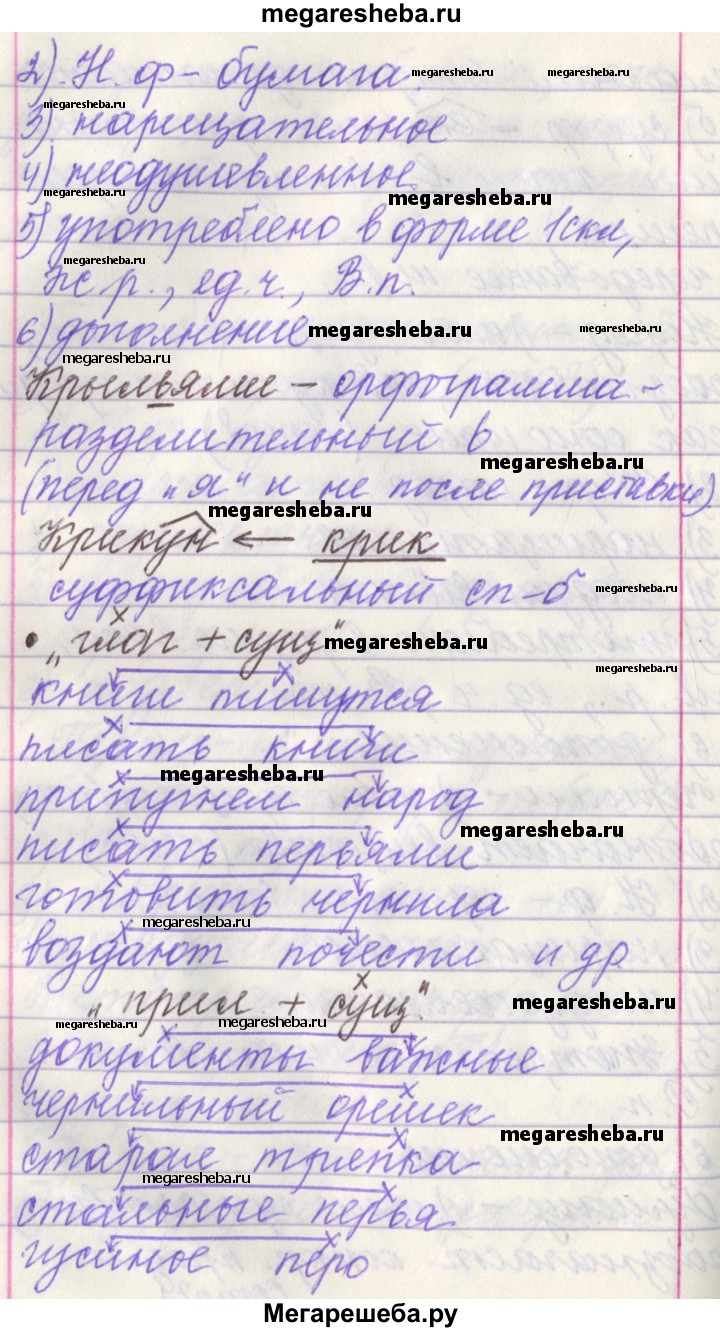 megaresheba.ru
2). Н. ф – бумага. megaresheba.ru megaresheba.ru
megaresheba.ru
3) нарицательное
4) неодушевленное.
megaresheba.ru megaresheba.ru
5) употреблено в форме 1 скл,
megaresheba.ru
ж. р., ед. ч., В. п.
6) дополнение megaresheba.ru megaresheba.ru
megaresheba.ru
Крыльями – орфограмма –
разделительный ь
megaresheba.ru
(перед „я" и не после приставки)
megaresheba.ru
Крикун ← крик
суффиксальный сп–б megaresheba.ru
• „глаг + сущ" megaresheba.ru
megaresheba.ru
книги пишутся
писать книги
megaresheba.ru
припугнем народ
megaresheba.ru
писать перьями
готовить чернила
megaresheba.ru
воздают почести и др
„прил + сущ". megaresheba.ru
megaresheba.ru megaresheba.ru
документы важные
чернильный орешек
megaresheba.ru
старая тряпка
megaresheba.ru
стальные перья
гусиное перо
Мегарешеба.ру